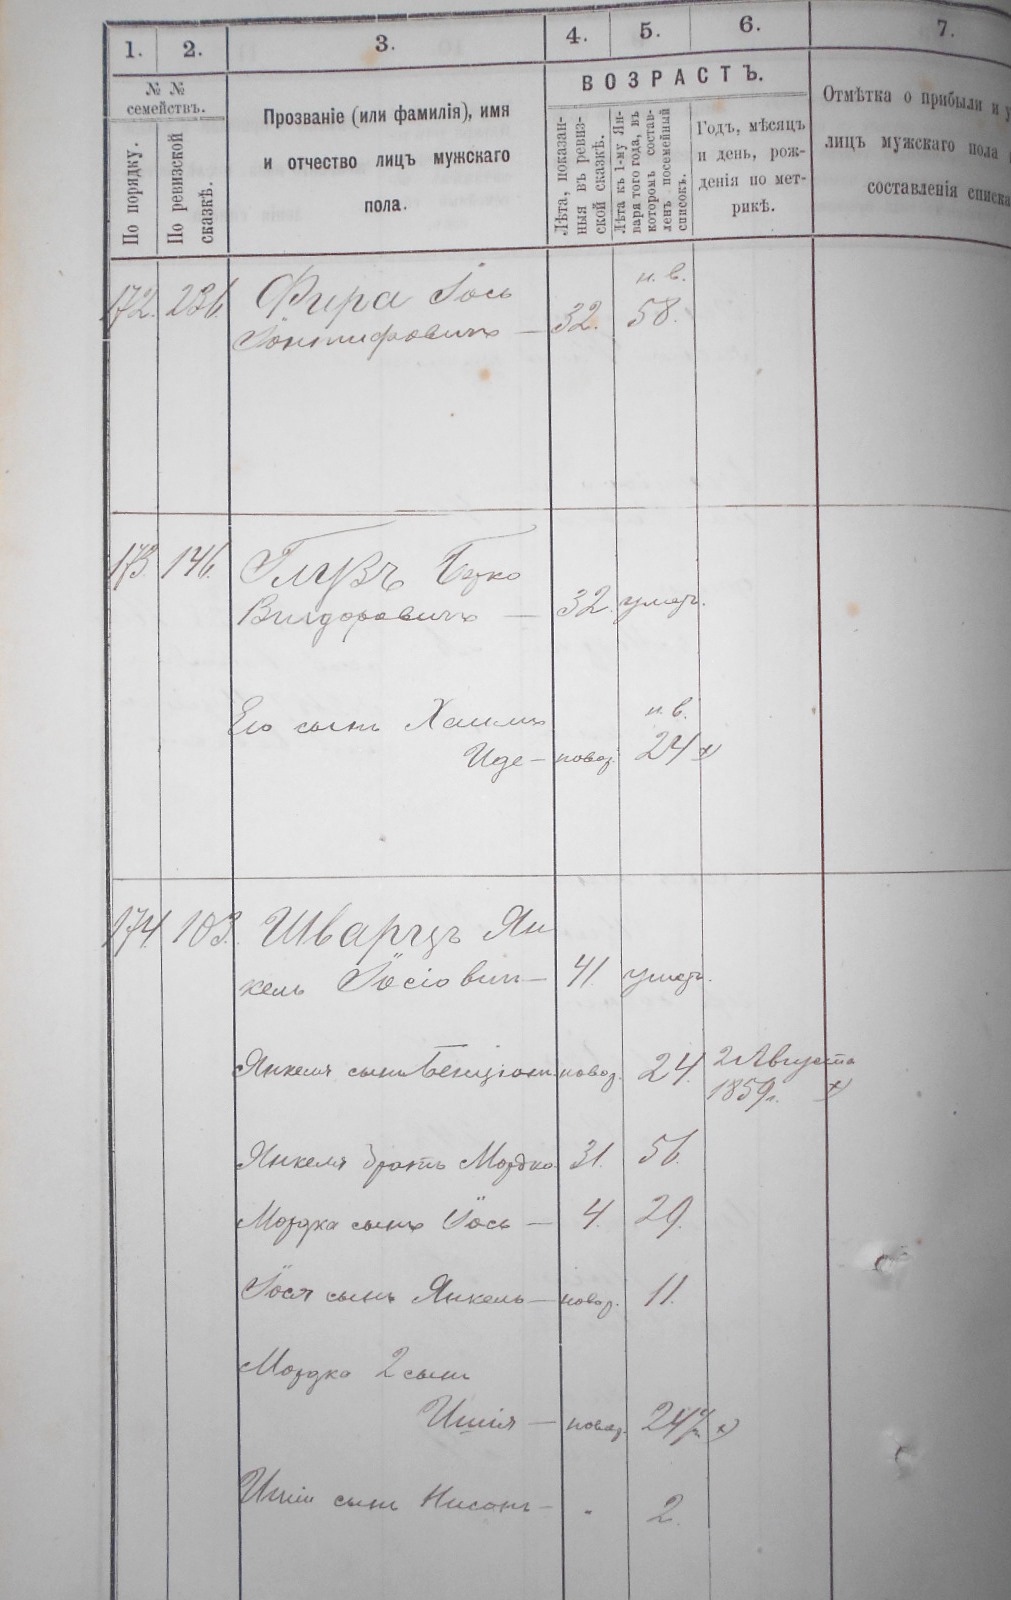 1. 2. 3. 4. 5. 6. 7.
№ № семействъ.
По порядку.
По ревизской сказкѣ.
Прозваніе (или фамилія), имя
и отчество лицъ мужскаго
пола.
ВОЗРАСТЪ.
Лѣта, показан-
ныя въ ревиз-
ской сказкѣ.
Лѣта къ 1-му Ян-
варя того года, въ
которомъ состав-
ленъ посемейный
списокъ.
Годъ, мѣсяцъ
и день, рож-
денія по мет-
рикѣ.
Отмѣтка о прибыли и у
лицъ мужскаго пола
составленія списка
н. в.
172. 236. Фира Іось
— 32. 58.
173. 146. Глузъ
— 32. умеръ.
Его сынъ Хаимъ н. в.
Иде — новор. 24 х)
174. 103. Шварцъ Ян
кель Іосіович — 41. умеръ.
Янкеля сынъ Бенціонъ новор. 24. 2 Августа
1859 г. х)
Янкеля братъ Мордко 31. 56.
Мордка сынъ Іось — 4. 29.
Іося сынъ Янкель — новор. 11.
Мордка 2 сынъ
Ишія — новор. 24 х)
Ишіи сынъ Нисонъ — - 2.